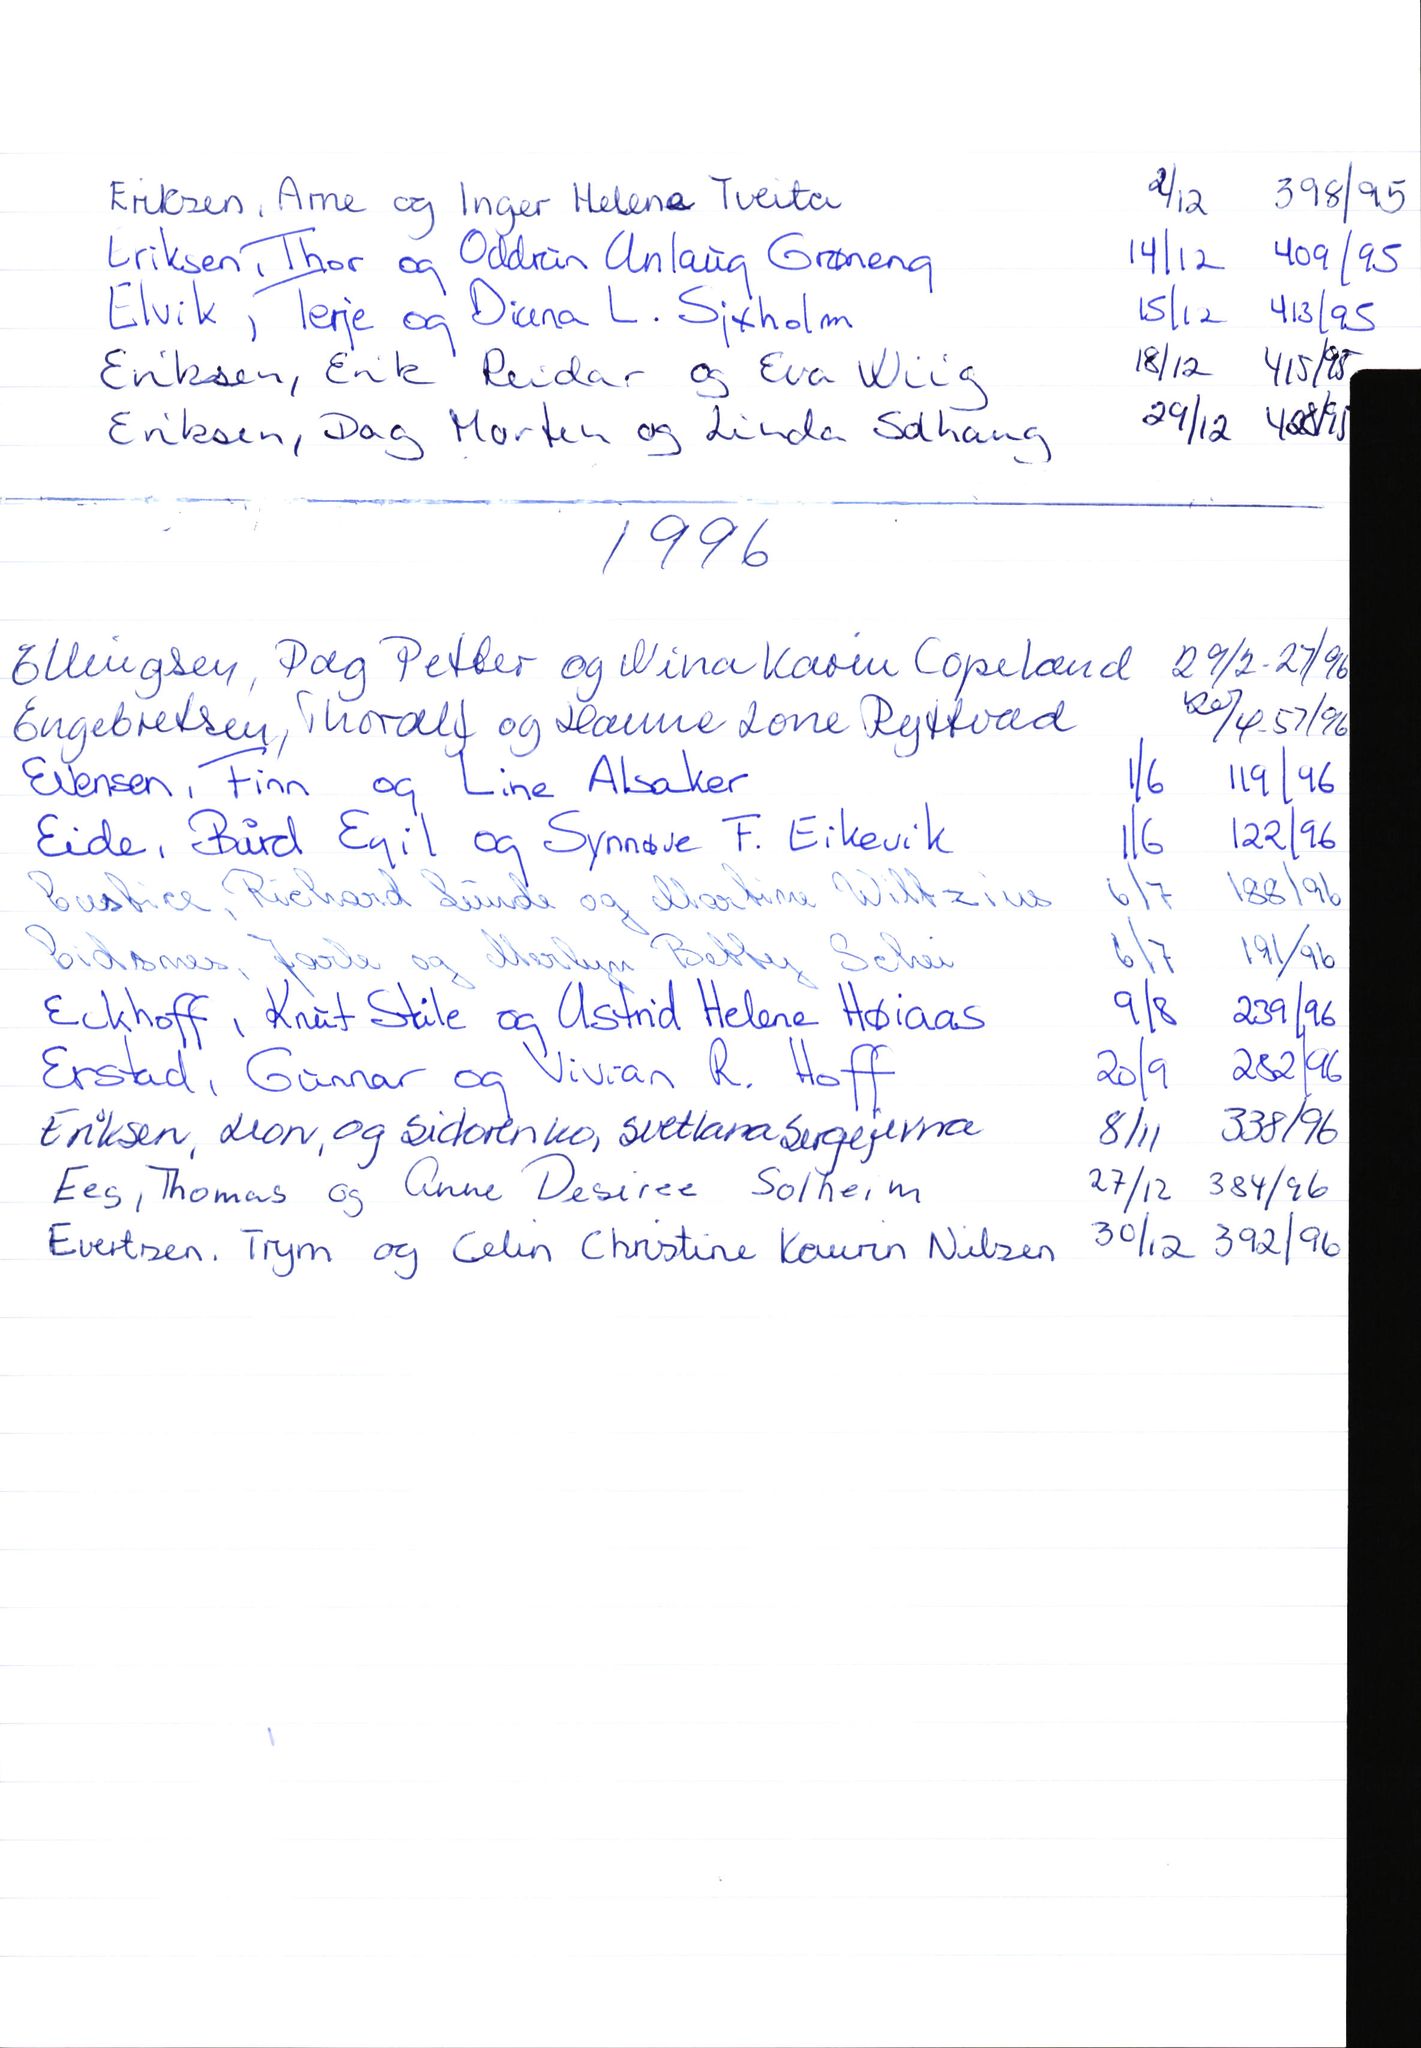 Eriksen, Arne og Inger Helene Tveita 2/12 398/95
Eriksen, Thor og Oddrun Anlaug Grøneng 14/12 409/95
Elvik, Terje og Diana L. Sjøholm 15/12 413/95
Eriksen, Erik Reidar og Eva Wiig 18/12 415/95
Eriksen, Dag Morten og Linda Solhaug 29/12 428/95
1996
Ellingsen, Dag Petter og Nina Karin Copeland 29/2 - 27/96
Engebretsen, Thoralf og Hanne Lone Ryttvad /4 - 57/96
Evensen, Finn og Line Alsaker 1/6 119/96
Eide, Bård Egil og Synnøve F. Eikevik 1/6 122/96
Eustice, Richard Lunde og Martine Wiltzius 6/7 188/96
Eidsnes, Jarle og Merlyn Betty Schei 6/7 191/96
Eckhoff, Knut Ståle og Astrid Helene Høiaas 9/8 239/96
Erstad, Gunnar og Vivian R. Hoff 20/9 282/96
Eriksen, Leon, og Sidorenko, Svetlana Sergejevna 8/11 338/96
Eeg, Thomas og Anne Desiree Solheim 27/12 384/96
Evertsen. Trym og Celin Christine Kaurin Nilsen 30/12 392/96